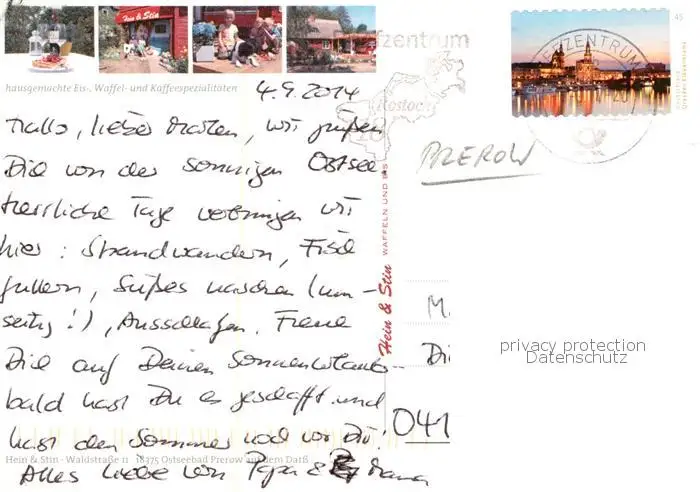 hausgemachte Eis-, Waffel- und Kaffeespezialitäten
4.9.2014
Hallo, lieber Maren, wir grüßen
Dich von der sonnigen Ostsee.
Herrliche Tage verbringen wir
hier: Strandwandern, Fisch
futtern, Süßes naschen (um-
seitig!), Ausschlafen. Freue
Dich auf Deinen Sonnenurlaub -
bald hast Du es geschafft und
hast den Sommer noch vor Dir!
Alles Liebe von Papa & Mama
Hein & Stin - Waldstraße 11 18375 Ostseebad Prerow auf dem Darß
Hein & Stin WAFFELN UND EIS
Hein & Stin
fzentrum
Rostock
18
BRIEFZENTRUM
45
PREROW
M.
Di
041
privacy protection
Datenschutz